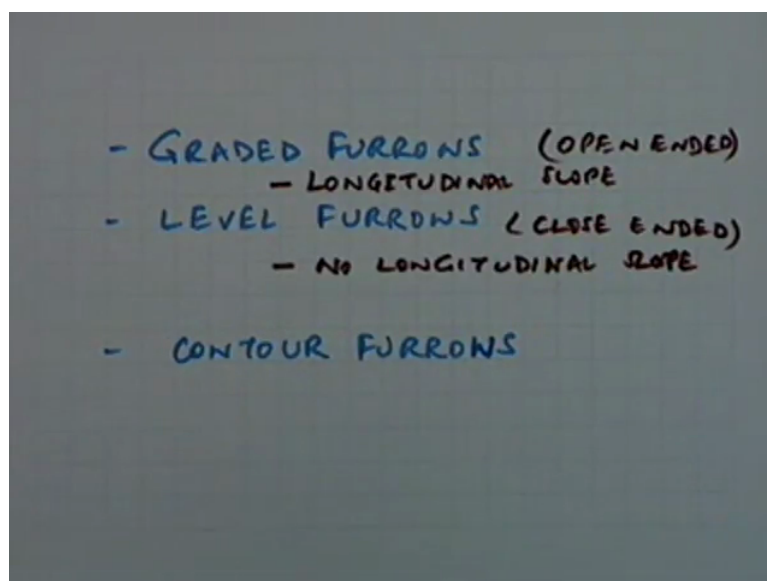 - GRADED FURROWS (OPEN ENDED)
- LONGITUDINAL SLOPE
- LEVEL FURROWS (CLOSE ENDED)
- NO LONGITUDINAL SLOPE
- CONTOUR FURROWS